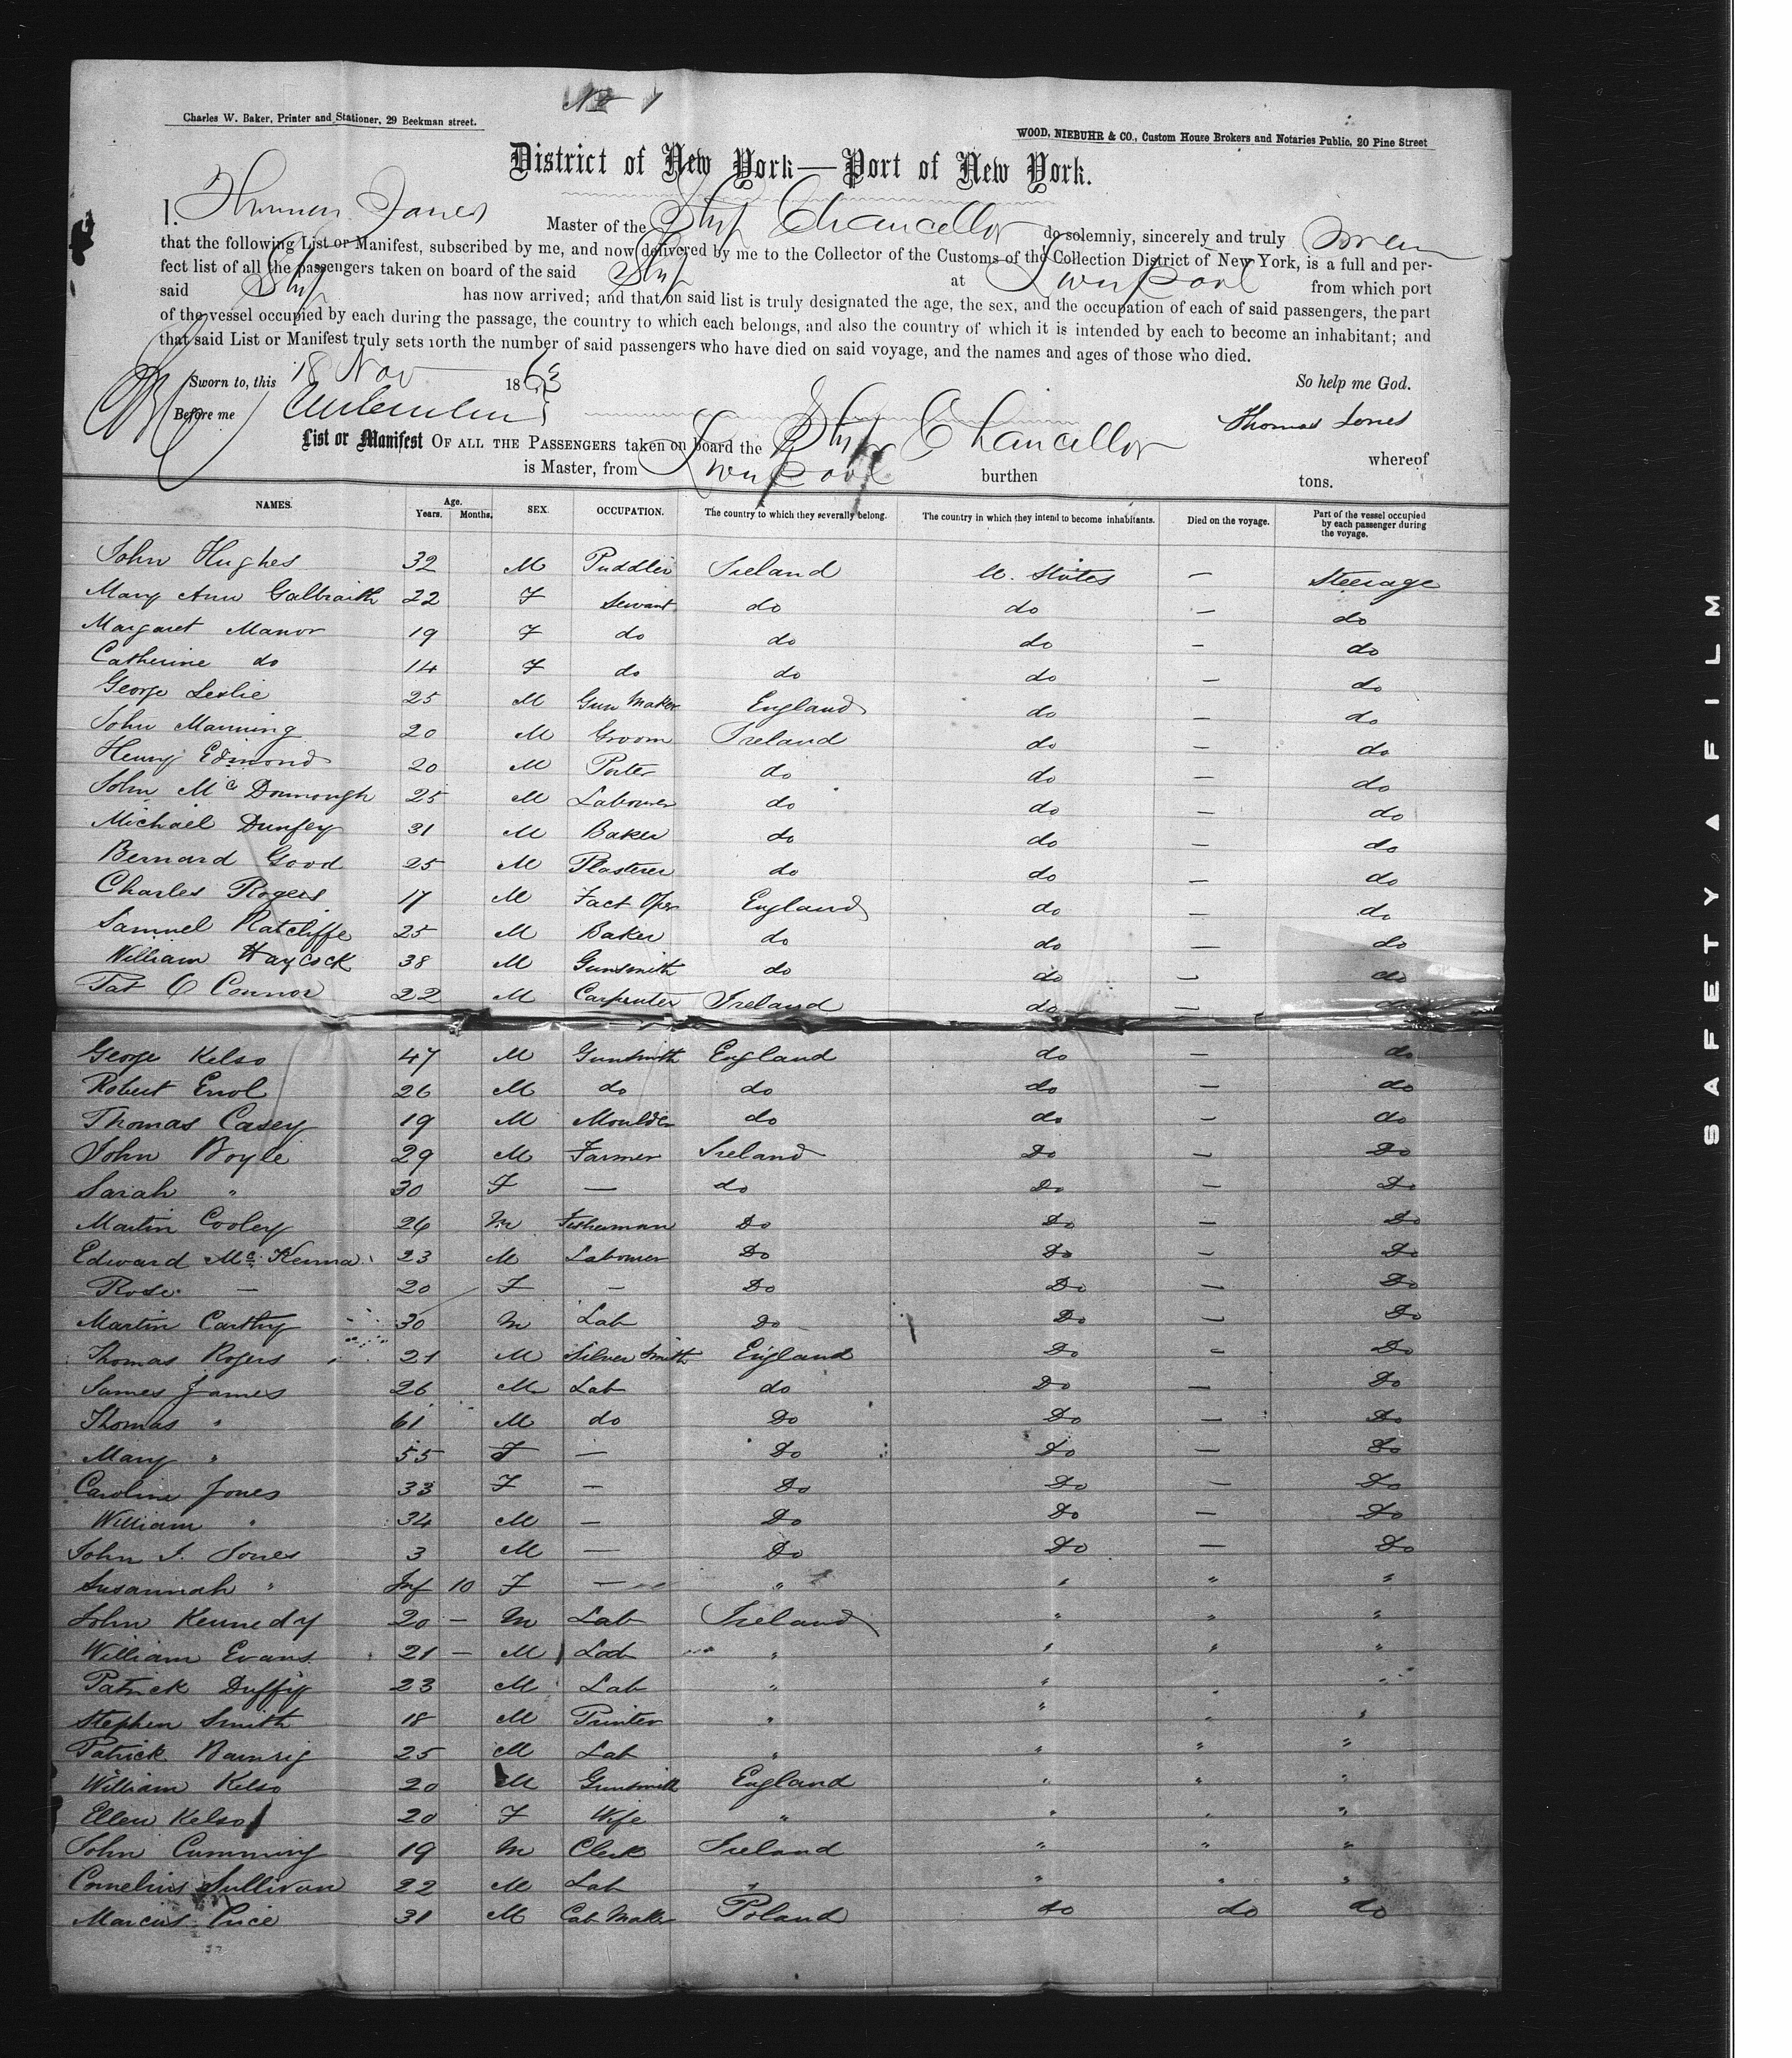 No 1
Charles W. Baker, Printer and Stationer, 29 Beekman street.
WOOD, NIEBUHR & CO., Custom House Brokers and Notaries Public, 20 Pine Street
District of New York—Port of New York.
I, Thomas Jones Master of the Ship Chancellor do solemnly, sincerely and truly swear
that the following List or Manifest, subscribed by me, and now delivered by me to the Collector of the Customs of the Collection District of New York, is a full and per-
fect list of all the passengers taken on board of the said Ship at Liverpool from which port
said Ship has now arrived; and that on said list is truly designated the age, the sex, and the occupation of each of said passengers, the part
of the vessel occupied by each during the passage, the country to which each belongs, and also the country of which it is intended by each to become an inhabitant; and
that said List or Manifest truly sets forth the number of said passengers who have died on said voyage, and the names and ages of those who died.
Sworn to, this 18 Nov 1863 So help me God.
Before me Thomas Jones
List or Manifest OF ALL THE PASSENGERS taken on board the Ship Chancellor whereof
is Master, from Liverpool burthen tons.
NAMES. Age. Years. Months. SEX. OCCUPATION. The country to which they severally belong. The country in which they intend to become inhabitants. Died on the voyage. Part of the vessel occupied by each passenger during the voyage.
John Hughes 32 M Puddler Ireland U. States — Steerage
Mary Ann Galbraith 22 F Servant do do — do
Margaret Manor 19 F do do do — do
Catherine do 14 F do do do — do
George Leslie 25 M Gun Maker England do — do
John Manning 20 M Groom Ireland do — do
Henry Edmond 20 M Porter do do — do
John Mc Donnough 25 M Labourer do do — do
Michael Dunfey 31 M Baker do do — do
Bernard Good 25 M Plasterer do do — do
Charles Rogers 17 M Fact Oper England do — do
Samuel Ratcliffe 25 M Baker do do — do
William Haycock 38 M Gunsmith do do — do
Pat O Connor 22 M Carpenter Ireland do — do
George Kelso 47 M Gunsmith England do — do
Robert Errol 26 M do do do — do
Thomas Casey 19 M Moulder do do — do
John Boyle 29 M Farmer Ireland Do — Do
Sarah " 30 F — do Do — Do
Martin Cooley 26 M Fisherman Do Do — Do
Edward Mc Kenna 23 M Labourer Do Do — Do
Rose — 20 F — Do Do — Do
Martin Carthy 30 M Lab Do Do — Do
Thomas Rogers 21 M Silver Smith England Do — Do
James James 26 M Lab do Do — Do
Thomas " 61 M do Do Do — Do
Mary " 55 F — Do Do — Do
Caroline Jones 33 F — Do Do — Do
William " 34 M — Do Do — Do
John I. Jones 3 M — Do Do — Do
Susannah " Inf 10 F — " " " "
John Kennedy 20 — M Lab Ireland " " "
William Evans 21 — M Lab " " " "
Patrick Duffy 23 M Lab " " " "
Stephen Smith 18 M Printer " " " "
Patrick 25 M Lab " " " "
William Kelso 20 M Gunsmith England " " "
Ellen Kelso 20 F Wife " " " "
John Cumming 19 M Clerk Ireland " " "
Cornelius Sullivan 22 M Lab " " " "
Marcus Price 31 M Cab Maker Poland do do do
SAFETY A FILM